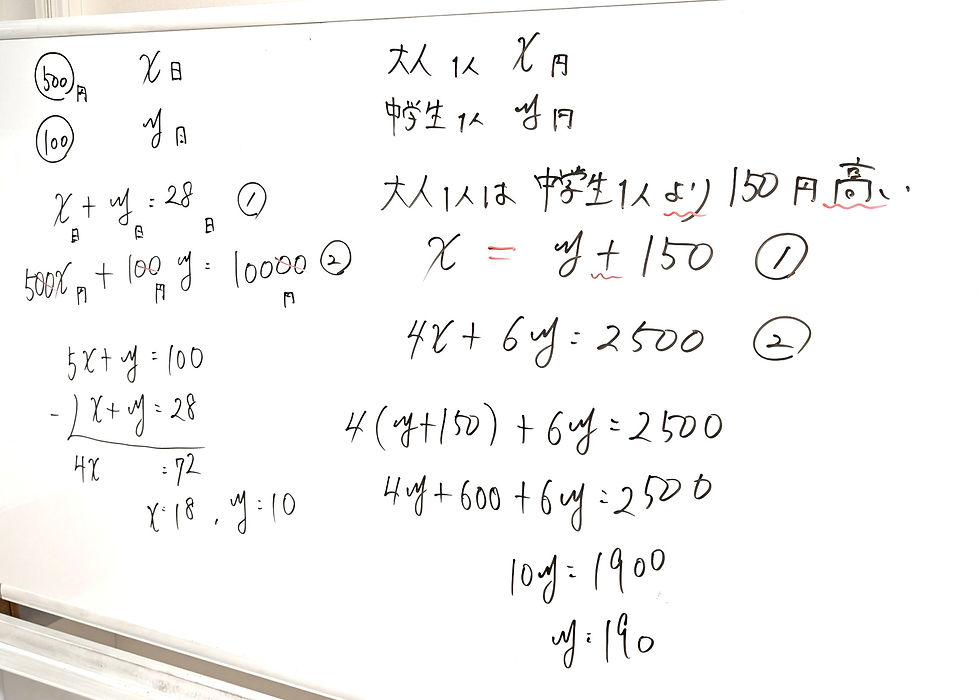 500円 x日
100 y日
x + y = 28 ①
日 日 日
500x + 100y = 10000 ②
円 円 円
5x + y = 100
-) x + y = 28
4x = 72
x = 18, y = 10
大人1人 x円
中学生1人 y円
大人1人は 中学生1人より 150円高い
x = y + 150 ①
4x + 6y = 2500 ②
4(y+150) + 6y = 2500
4y + 600 + 6y = 2500
10y = 1900
y = 190